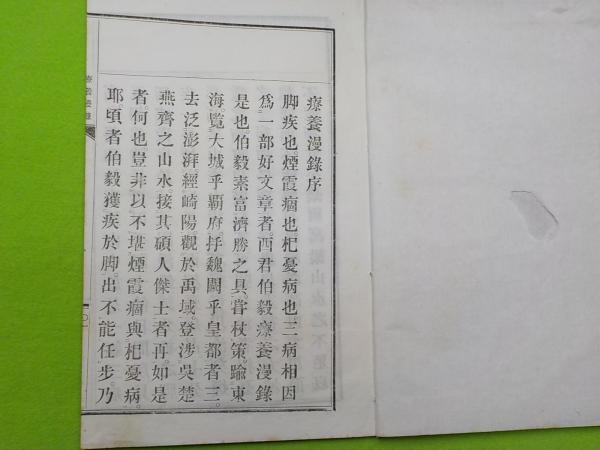 療養漫錄序
脚疾也。煙霞痼也。杞憂病也。三病相因
爲一部好文章者。西君伯毅療養漫錄
是也。伯毅素富濟勝之具。嘗杖策。踰東
海。覽大城乎覇府。拝魏闕乎皇都者三。
去泛澎湃。經崎陽。觀於禹域。登涉吳楚
燕齊之山水。接其碩人傑士者再。如是
者何也。豈非以不堪煙霞痼與杞憂病。
耶。頃者伯毅獲疾於脚。出不能任步。乃
療養漫錄